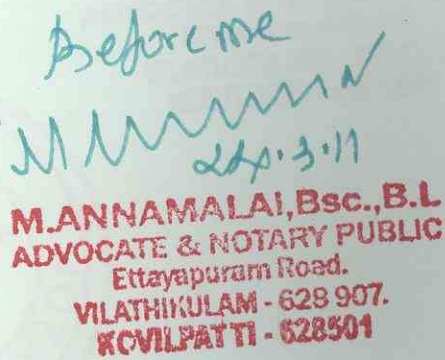 Before me
M.ANNAMALAI,Bsc.,B.L
ADVOCATE & NOTARY PUBLIC
Ettayapuram Road.
VILATHIKULAM - 628 907.
KOVILPATTI - 628501